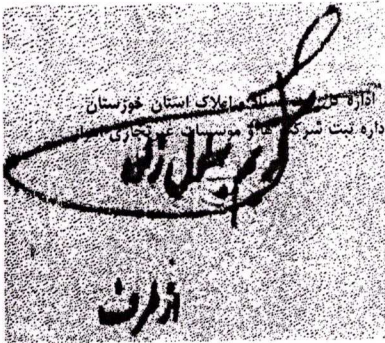 اداره کل ثبت اسناد و املاک استان خوزستان
اداره ثبت شرکت ها و موسسات غیرتجاری اهواز
از طرف